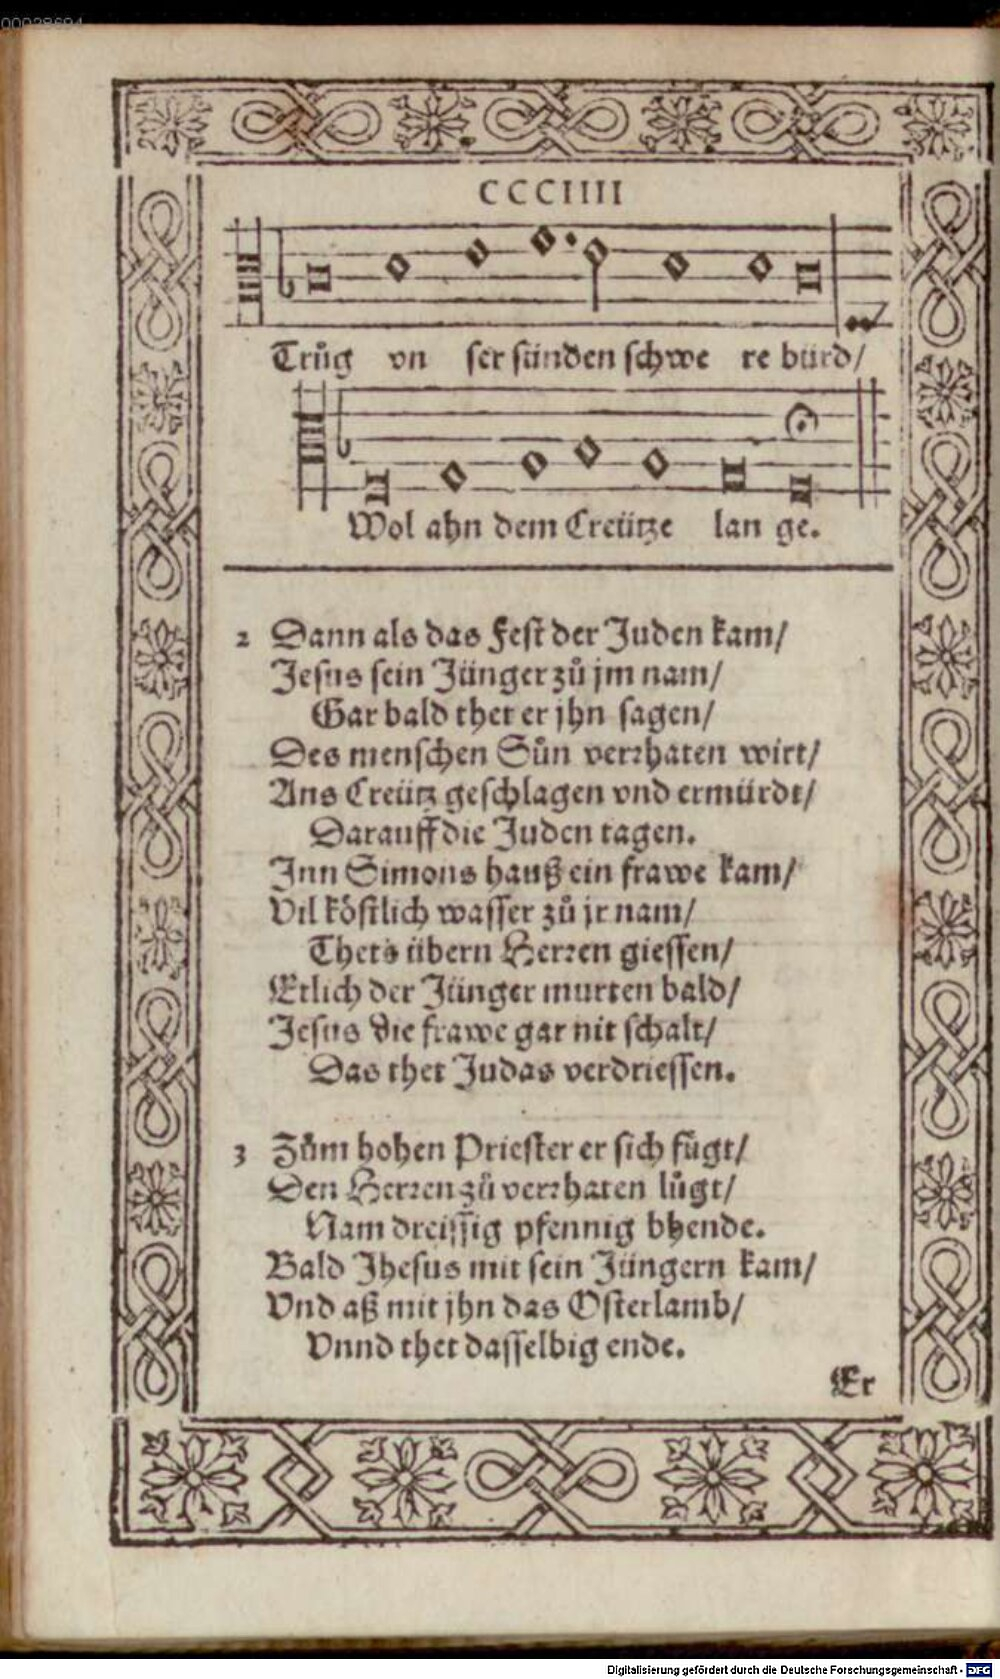 00028694
CCCIIII
Trůg vn ser sünden schwe re bürd/
Wol ahn dem Creütze lan ge.
2 Dann als das Fest der Juden kam/
Jesus sein Jünger zů jm nam/
Gar bald thet er jhn sagen/
Des menschen Sůn verrhaten wirt/
Ans Creütz geschlagen vnd ermürdt/
Darauff die Juden tagen.
Inn Simons hauß ein frawe kam/
Vil köstlich wasser zů jr nam/
Thets übern Herren giessen/
Etlich der Jünger murten bald/
Jesus die frawe gar nit schalt/
Das thet Judas verdriessen.
3 Zům hohen Priester er sich fügt/
Den Herren zů verrhaten lůgt/
Nam dreissig pfennig bhende.
Bald Jhesus mit sein Jüngern kam/
Vnd aß mit jhn das Osterlamb/
Vnnd thet dasselbig ende.
Er
Digitalisierung gefördert durch die Deutsche Forschungsgemeinschaft - DFG